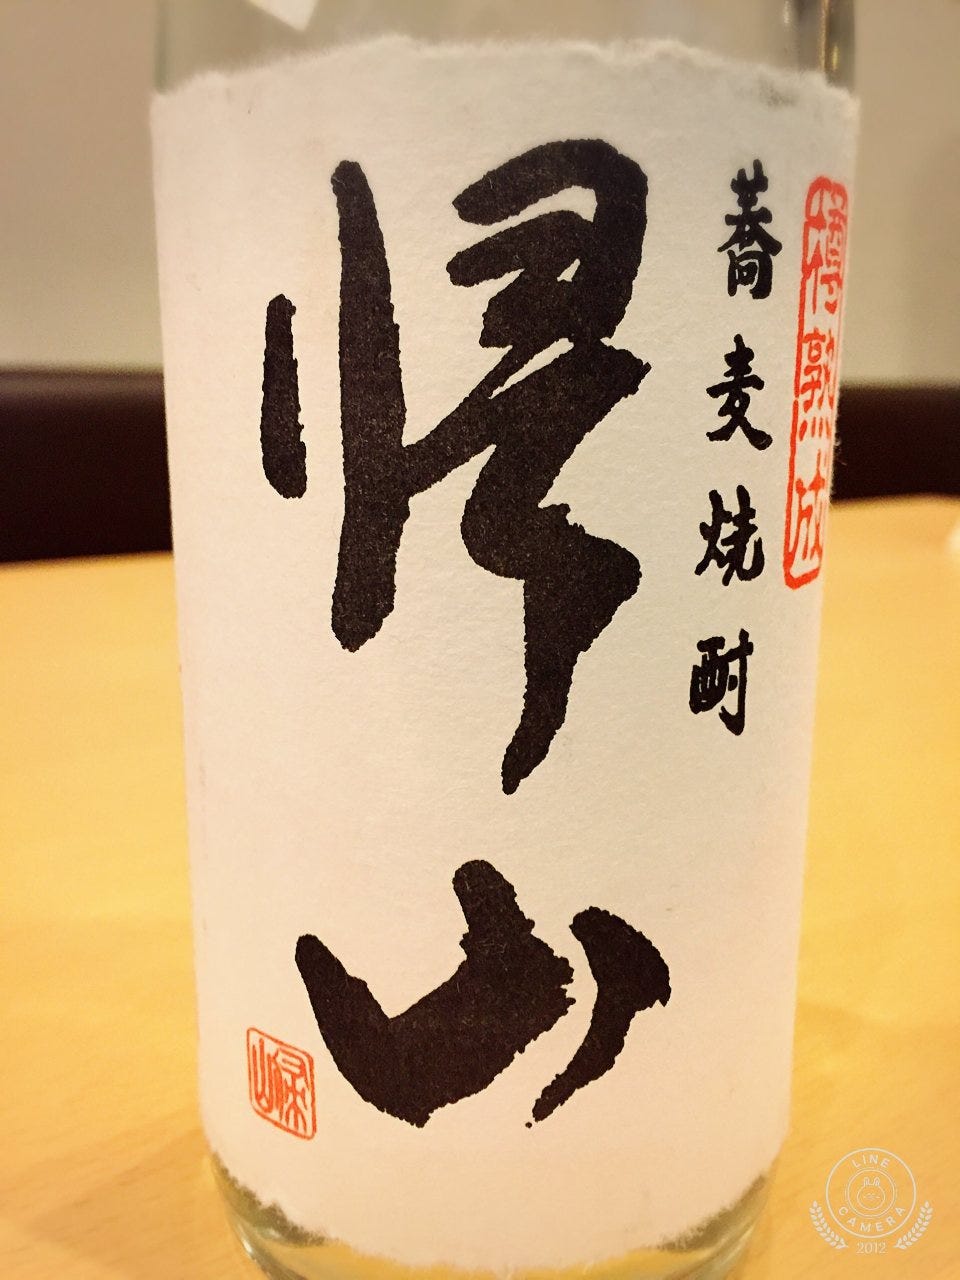 樽熟成
蕎麦焼酎
帰山
帰山
LINE
CAMERA
2012